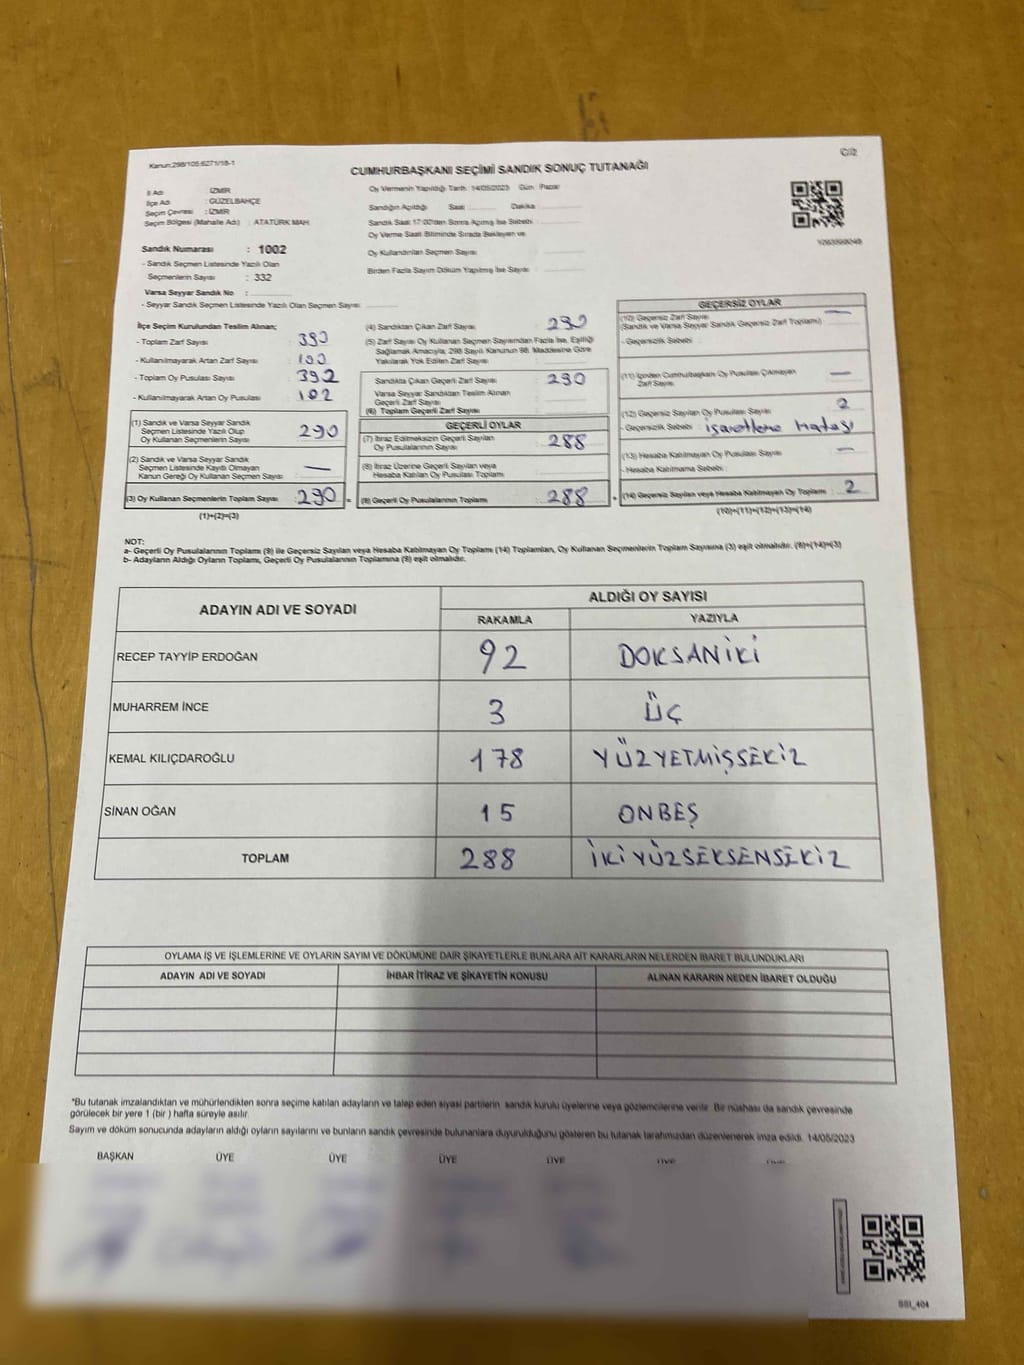 Kanun:298/105-6271/18-1
C/2
CUMHURBAŞKANI SEÇİMİ SANDIK SONUÇ TUTANAĞI
İl Adı : İZMİR
İlçe Adı : GÜZELBAHÇE
Seçim Çevresi : İZMİR
Seçim Bölgesi (Mahalle Adı) : ATATÜRK MAH.
Sandık Numarası : 1002
- Sandık Seçmen Listesinde Yazılı Olan
Seçmenlerin Sayısı : 332
Varsa Seyyar Sandık No :
- Seyyar Sandık Seçmen Listesinde Yazılı Olan Seçmen Sayısı
Oy Vermenin Yapıldığı Tarih: 14/05/2023 Gün: Pazar
Sandığın Açıldığı Saat: Dakika
Sandık Saat 17:00'den Sonra Açılmış İse Sebebi
Oy Verme Saati Bitiminde Sırada Bekleyen ve
Oy Kullandırılan Seçmen Sayısı
Birden Fazla Sayım Döküm Yapılmış İse Sayısı
İlçe Seçim Kurulundan Teslim Alınan;
- Toplam Zarf Sayısı : 390
- Kullanılmayarak Artan Zarf Sayısı : 100
- Toplam Oy Pusulası Sayısı : 392
- Kullanılmayarak Artan Oy Pusulası : 102
(1) Sandık ve Varsa Seyyar Sandık
Seçmen Listesinde Yazılı Olup
Oy Kullanan Seçmenlerin Sayısı 290
(2) Sandık ve Varsa Seyyar Sandık
Seçmen Listesinde Kayıtlı Olmayan
Kanun Gereği Oy Kullanan Seçmen Sayısı —
(3) Oy Kullanan Seçmenlerin Toplam Sayısı 290 =
(1)+(2)=(3)
(4) Sandıktan Çıkan Zarf Sayısı : 290
(5) Zarf Sayısı Oy Kullanan Seçmen Sayısından Fazla İse, Eşitliği
Sağlamak Amacıyla, 298 Sayılı Kanunun 98. Maddesine Göre
Yakılarak Yok Edilen Zarf Sayısı
Sandıkta Çıkan Geçerli Zarf Sayısı : 290
Varsa Seyyar Sandıktan Teslim Alınan
Geçerli Zarf Sayısı
(6) Toplam Geçerli Zarf Sayısı
GEÇERLİ OYLAR
(7) İtiraz Edilmeksizin Geçerli Sayılan
Oy Pusulalarının Sayısı : 288
(8) İtiraz Üzerine Geçerli Sayılan veya
Hesaba Katılan Oy Pusulası Toplamı
(9) Geçerli Oy Pusulalarının Toplamı : 288 +
GEÇERSİZ OYLAR
(10) Geçersiz Zarf Sayısı —
(Sandık ve Varsa Seyyar Sandık Geçersiz Zarf Toplamı)
- Geçersizlik Sebebi :
(11) İçinden Cumhurbaşkanı Oy Pusulası Çıkmayan
Zarf Sayısı —
(12) Geçersiz Sayılan Oy Pusulası Sayısı : 2
- Geçersizlik Sebebi : işaretleme hatası
(13) Hesaba Katılmayan Oy Pusulası Sayısı : —
- Hesaba Katılmama Sebebi :
(14) Geçersiz Sayılan veya Hesaba Katılmayan Oy Toplamı : 2
(10)+(11)+(12)+(13)=(14)
NOT:
a- Geçerli Oy Pusulalarının Toplamı (9) ile Geçersiz Sayılan veya Hesaba Katılmayan Oy Toplamı (14) Toplamları, Oy Kullanan Seçmenlerin Toplam Sayısına (3) eşit olmalıdır. (9)+(14)=(3)
b- Adayların Aldığı Oyların Toplamı, Geçerli Oy Pusulalarının Toplamına (9) eşit olmalıdır.
ADAYIN ADI VE SOYADI
ALDIĞI OY SAYISI
RAKAMLA YAZIYLA
RECEP TAYYİP ERDOĞAN 92 DOKSANİKİ
MUHARREM İNCE 3 ÜÇ
KEMAL KILIÇDAROĞLU 178 YÜZYETMİŞSEKİZ
SİNAN OĞAN 15 ONBEŞ
TOPLAM 288 İKİYÜZSEKSENSEKİZ
OYLAMA İŞ VE İŞLEMLERİNE VE OYLARIN SAYIM VE DÖKÜMÜNE DAİR ŞİKAYETLERLE BUNLARA AİT KARARLARIN NELERDEN İBARET BULUNDUKLARI
ADAYIN ADI VE SOYADI İHBAR İTİRAZ VE ŞİKAYETİN KONUSU ALINAN KARARIN NEDEN İBARET OLDUĞU
*Bu tutanak imzalandıktan ve mühürlendikten sonra seçime katılan adayların ve talep eden siyasi partilerin sandık kurulu üyelerine veya gözlemcilerine verilir. Bir nüshası da sandık çevresinde
görülecek bir yere 1 (bir) hafta süreyle asılır.
Sayım ve döküm sonucunda adayların aldığı oyların sayılarını ve bunların sandık çevresinde bulunanlara duyurulduğunu gösteren bu tutanak tarafımızdan düzenlenerek imza edildi. 14/05/2023
BAŞKAN ÜYE ÜYE ÜYE ÜYE
SSI_404